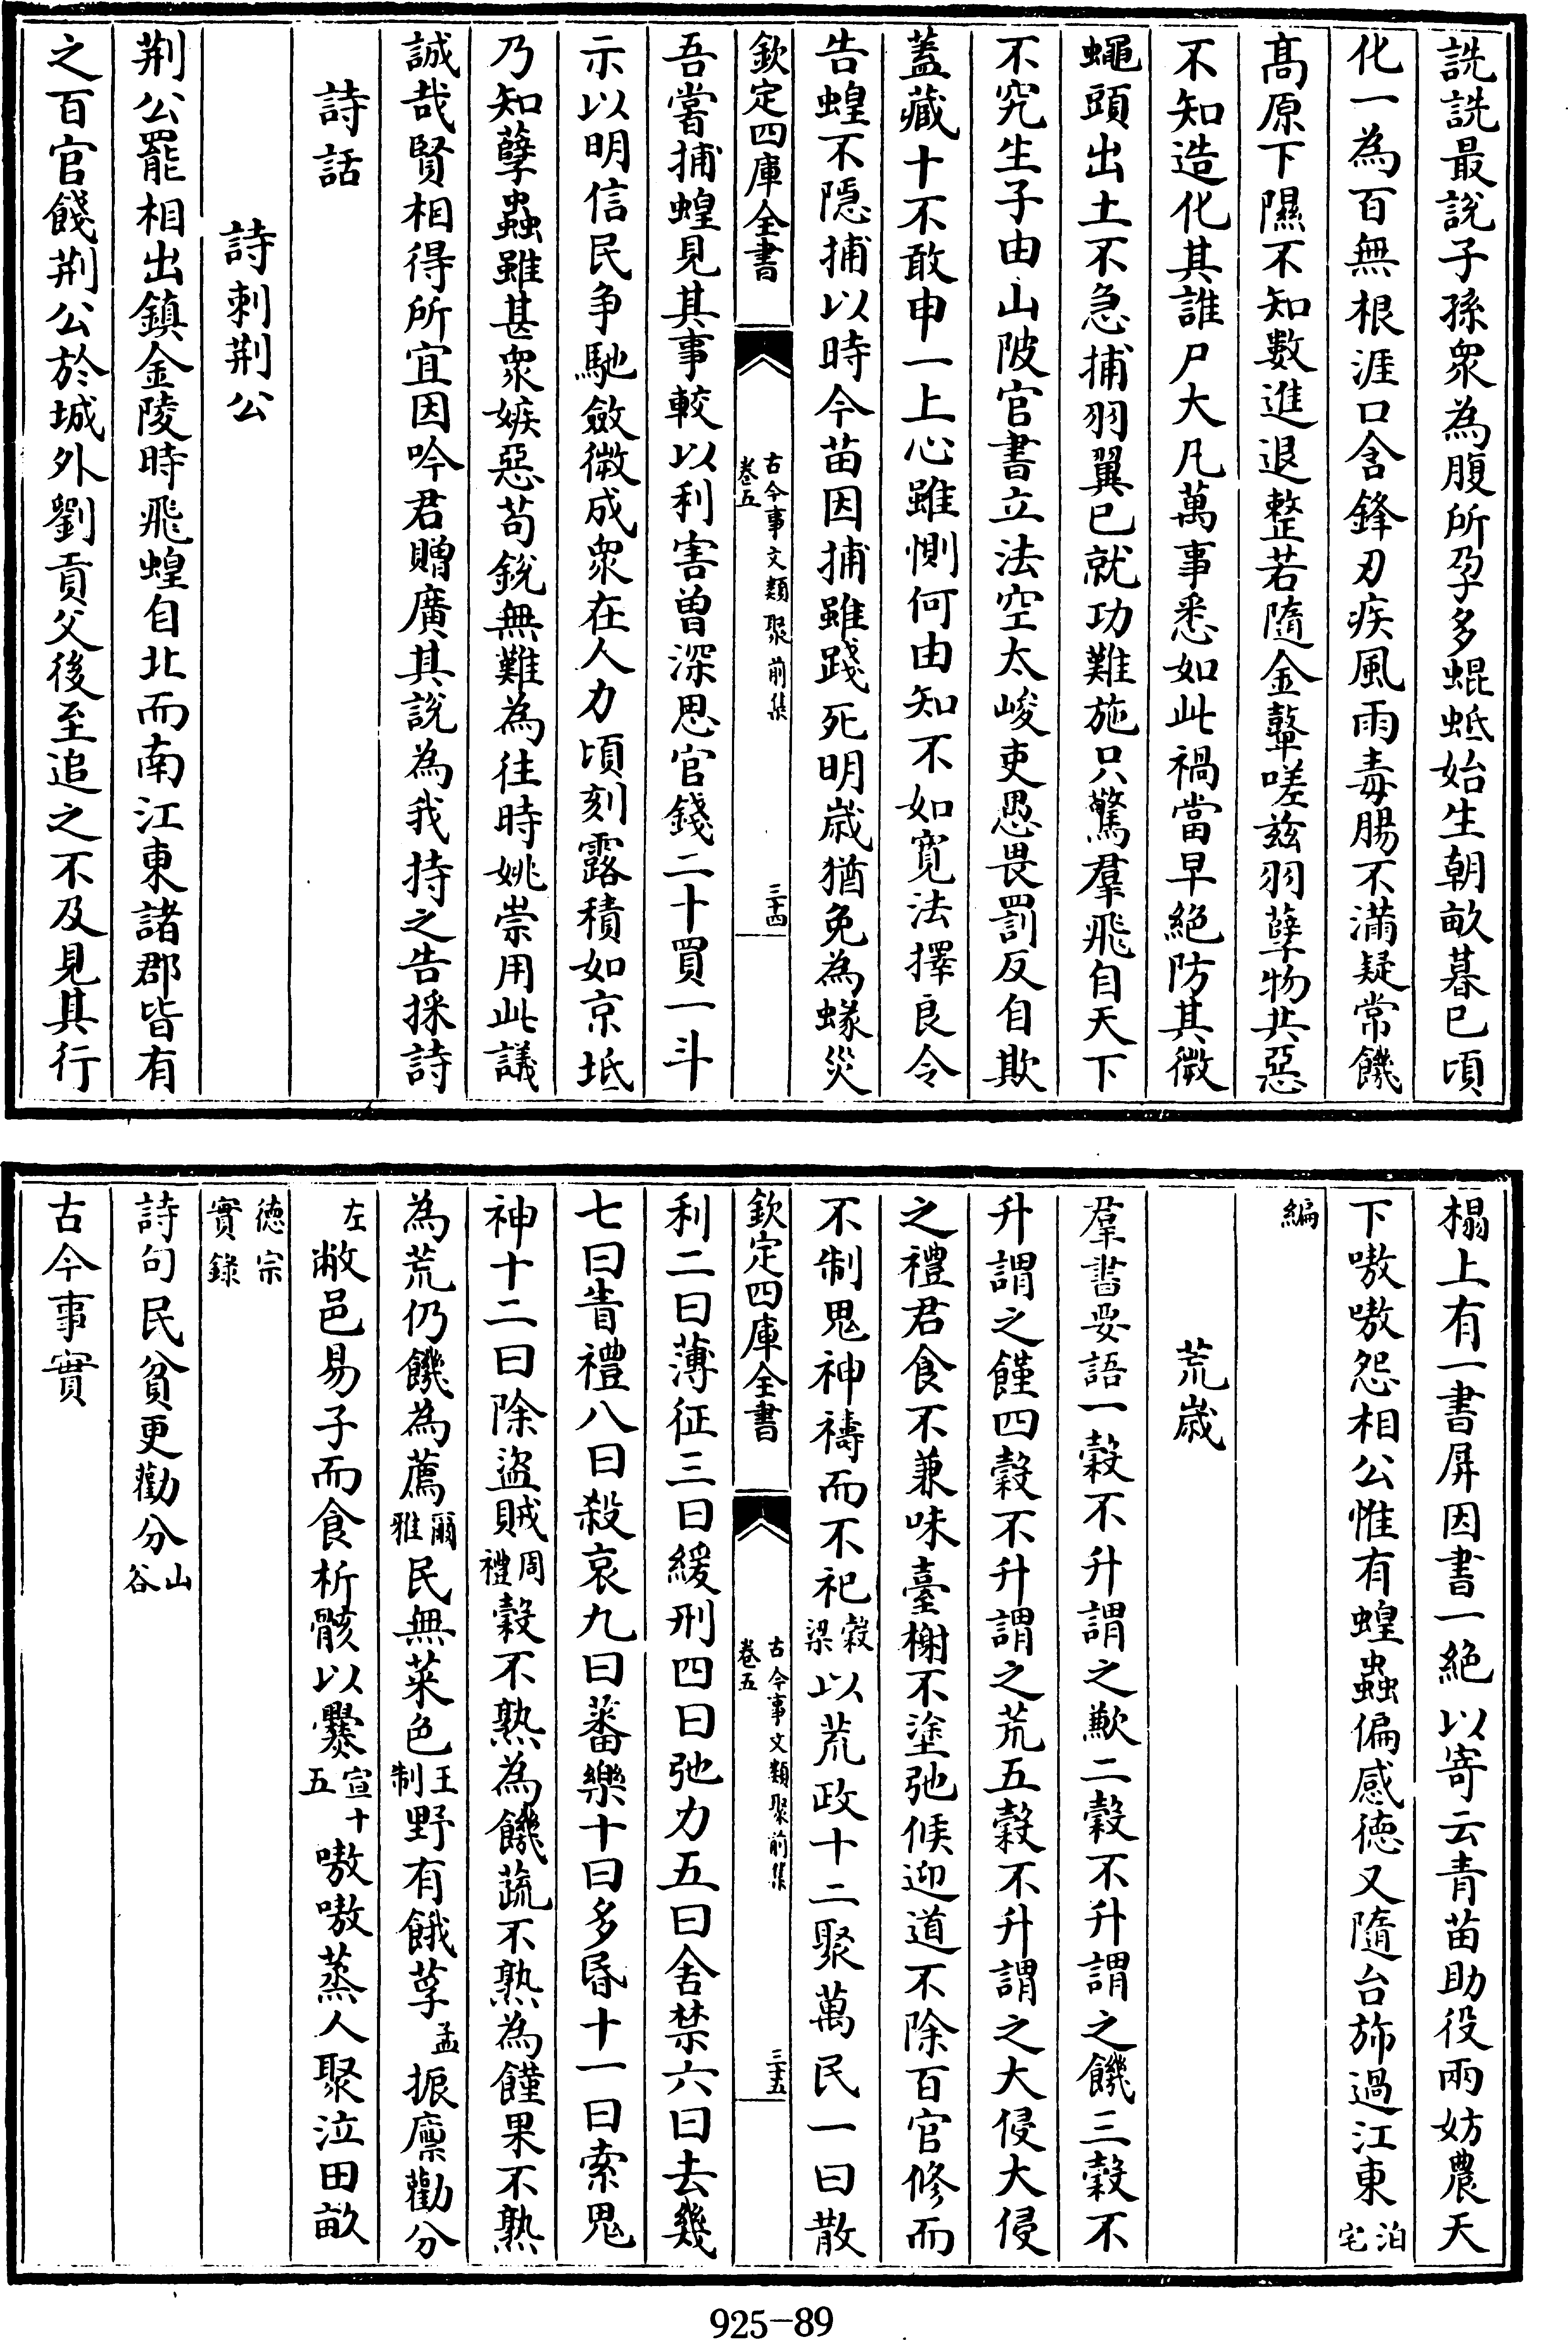 詵詵最說子孫衆為腹所孕多蜫蚳始生朝畝暮已頃
化一為百無根涯口含鋒刃疾風雨毒腸不滿疑常饑
髙原下隰不知數進退整若隨金鼙嗟兹羽孽物共惡
不知造化其誰尸大凡萬事悉如此禍當早絕防其微
蠅頭出土不急捕羽翼已就功難施只驚羣飛自天下
不究生子由山陂官書立法空太峻吏愚畏罰反自欺
蓋藏十不敢申一上心雖惻何由知不如寛法擇良令
告蝗不隱捕以時今苗因捕雖踐死明嵗猶免為蝝災
欽定四庫全書
古今事文類聚前集
卷五
三十四
吾嘗捕蝗見其事較以利害曽深思官錢二十買一斗
示以明信民争馳斂微成衆在人力頃刻露積如京坻
乃知孽蟲雖甚衆嫉惡茍銳無難為往時姚崇用此議
誠哉賢相得所宜因吟君贈廣其說為我持之告採詩
詩話
詩刺荆公
荆公罷相出鎮金陵時飛蝗自北而南江東諸郡皆有
之百官餞荆公於城外劉貢父後至追之不及見其行
榻上有一書屏因書一絕以寄云青苗助役兩妨農天
下嗷嗷怨相公惟有蝗蟲偏感徳又隨台斾過江東泊宅
編
荒嵗
羣書要語一榖不升謂之歉二榖不升謂之饑三榖不
升謂之饉四榖不升謂之荒五榖不升謂之大侵大侵
之禮君食不兼味臺榭不塗弛候迎道不除百官修而
不制鬼神禱而不祀榖梁以荒政十二聚萬民一曰散
欽定四庫全書
古今事文類聚前集
卷五
三十五
利二曰薄征三曰緩刑四曰弛力五曰舍禁六曰去幾
七曰眚禮八曰殺哀九曰蕃樂十曰多昏十一曰索鬼
神十二曰除盜賊周禮榖不熟為饑蔬不熟為饉果不熟
為荒仍饑為薦爾雅民無菜色王制野有餓莩孟振廪勸分
左敝邑易子而食析骸以爨宣十五嗷嗷蒸人聚泣田畝
徳宗實錄
詩句民貧更勸分山谷
古今事實
925-89